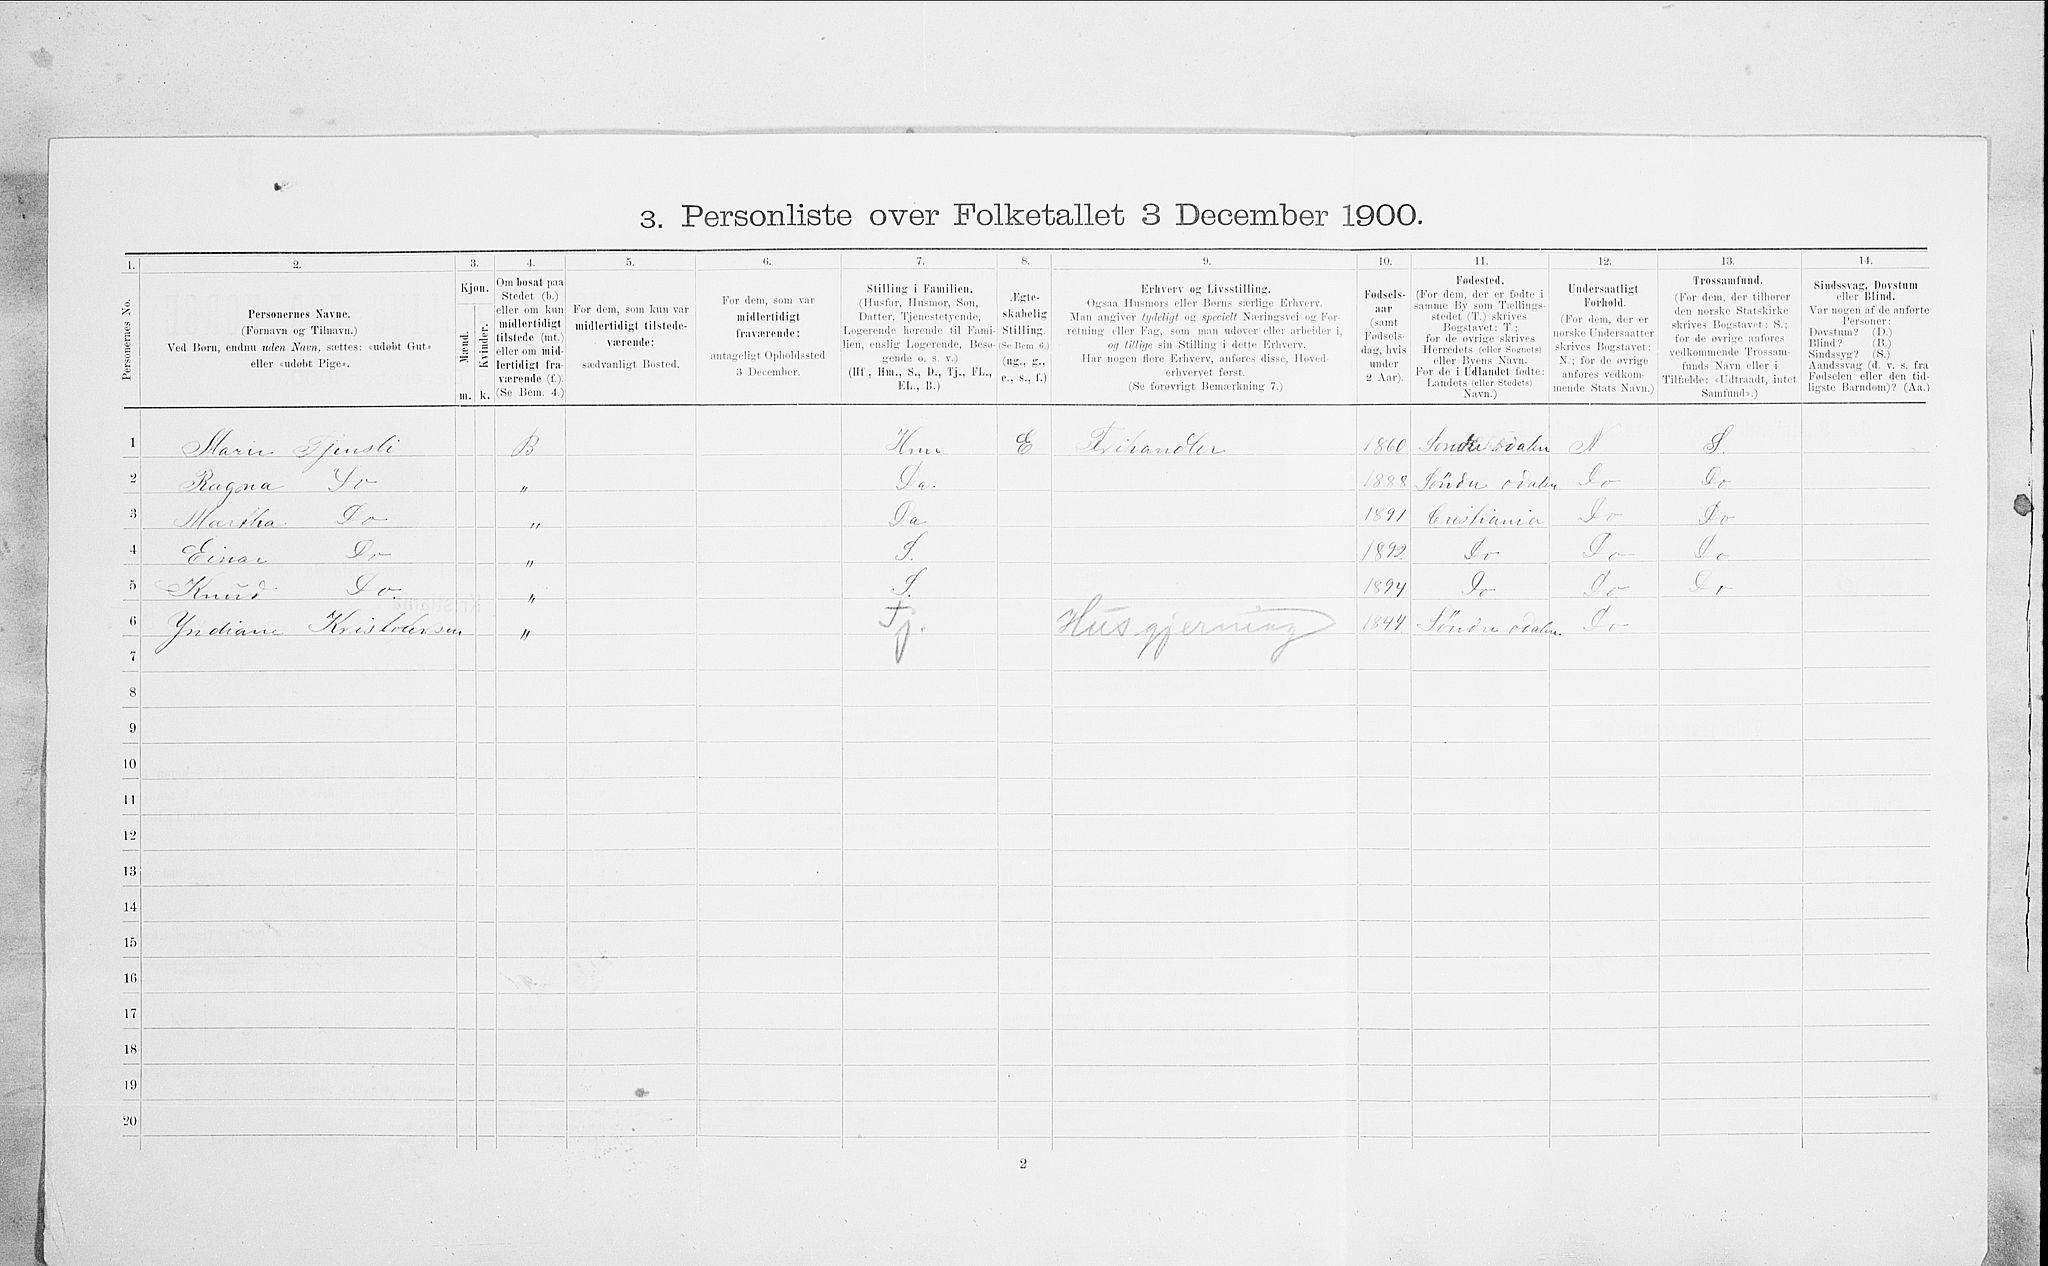 3. Personliste over Folketallet 3 December 1900.
1. 2. 3. 4. 5. 6. 7. 8. 9. 10. 11. 12. 13. 14.
Personernes No.
Personernes Navne.
(Fornavn og Tilnavn.)
Ved Børn, endnu uden Navn, sættes: «udøbt Gut»
eller «udøbt Pige».
Kjøn.
Mænd.
Kvinder.
m. k.
Om bosat paa
Stedet (b.)
eller om kun
midlertidigt
tilstede (mt.)
eller om mid-
lertidigt fra-
værende (f.).
(Se Bem. 4.)
For dem, som kun var
midlertidigt tilstede-
værende:
sædvanligt Bosted.
For dem, som var
midlertidigt
fraværende:
antageligt Opholdssted
3 December.
Stilling i Familien.
(Husfar, Husmor, Søn,
Datter, Tjenestetyende,
Logerende hørende til Fami-
lien, enslig Logerende, Besø-
gende o. s. v.)
(Hf., Hm., S., D., Tj., FL.,
EL., B.)
Ægte-
skabelig
Stilling.
(Se Bem. 6.)
(ug., g.,
e., s., f.)
Erhverv og Livsstilling.
Ogsaa Husmors eller Børns særlige Erhverv.
Man angiver tydeligt og specielt Næringsvei og For-
retning eller Fag, som man udøver eller arbeider i,
og tillige sin Stilling i dette Erhverv.
Har nogen flere Erhverv, anføres disse, Hoved-
erhvervet først.
(Se forøvrigt Bemærkning 7.)
Fødsels-
aar
(samt
Fødsels-
dag, hvis
under
2 Aar).
Fødested.
(For dem, der er fødte i
samme By som Tællings-
stedet (T.) skrives
Bogstavet: T.;
for de øvrige skrives
Herredets (eller Sognets)
eller Byens Navn.
For de i Udlandet fødte:
Landets (eller Stedets)
Navn.)
Undersaatligt
Forhold.
(For dem, der er
norske Undersaatter
skrives Bogstavet:
N.; for de øvrige
anføres vedkom-
mende Stats Navn.)
Trossamfund.
(For dem, der tilhører
den norske Statskirke
skrives Bogstavet: S.;
for de øvrige anføres
vedkommende Trossam-
funds Navn eller i
Tilfælde: «Udtraadt, intet
Samfund».)
Sindssvag, Døvstum
eller Blind.
Var nogen af de anførte
Personer:
Døvstum? (D.)
Blind? (B.)
Sindssyg? (S.)
Aandssvag (d. v. s. fra
Fødselen eller den tid-
ligste Barndom)? (Aa.)
1 Marie Tjensli B Hm E Frihandler 1860 Søndre Odalen N S.
2 Ragna Do " Da. 1888 Söndre Odalen Do Do
3 Martha Do " Da 1891 Cristiania Do Do
4 Einar Do " S. 1892 Do Do Do
5 Knud Do. " S. 1894 Do Do Do
6 Yndiane Kristofersen " Tj. Husgjerning 1844 Söndre Odalen Do
7
8
9
10
11
12
13
14
15
16
17
18
19
20
2